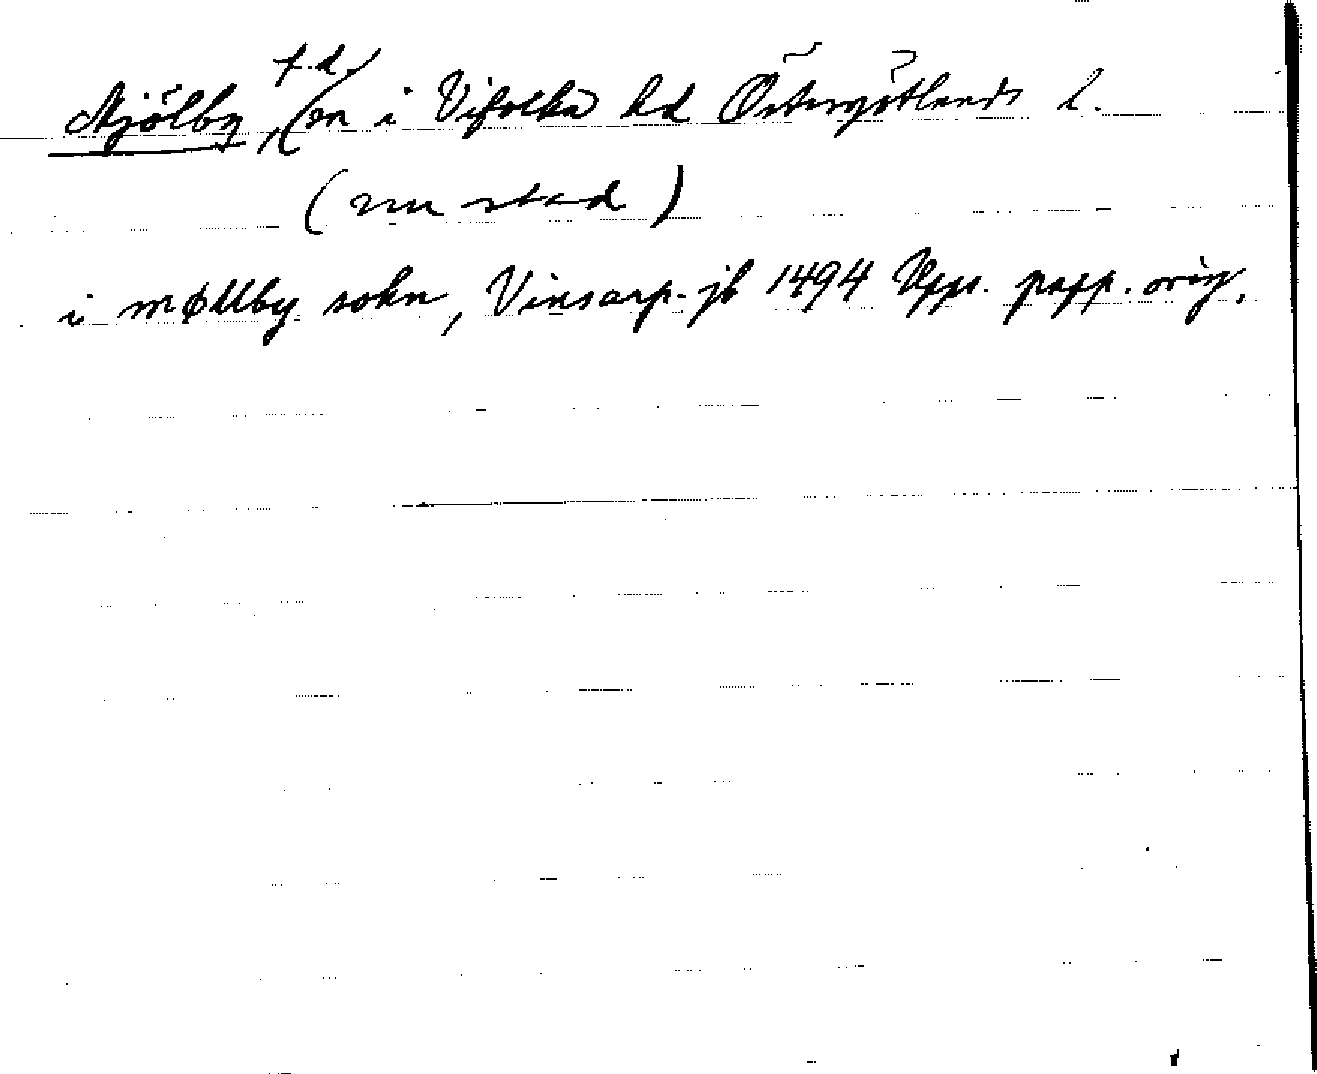 Mjölby, f.d. sn i Vifolka hd Östergötlands l.
(nu stad)
i møllby sokn, Vinsarp. jb 1494 Upps. papp. orig.